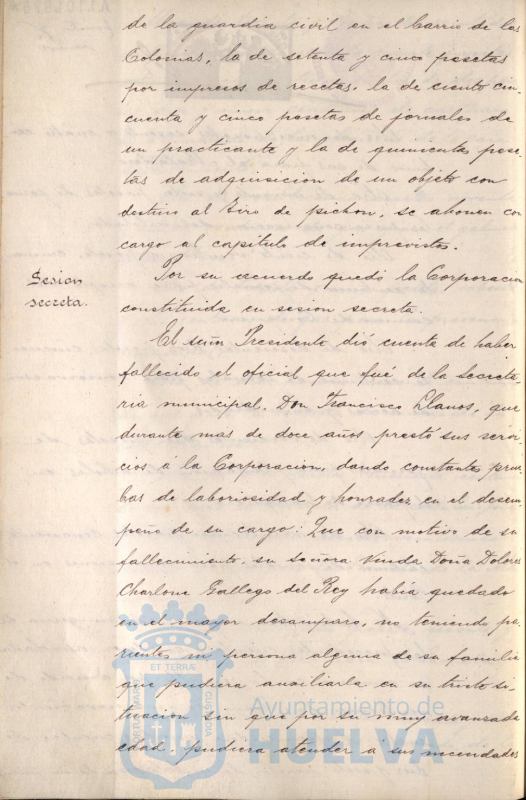 de la guardia civil en el barrio de las
Colonias, la de setenta y cinco pesetas
por impresos de recetas, la de ciento cin-
cuenta y cinco pesetas de jornales de
un practicante y la de quinientas pese-
tas de adquisicion de un objeto con
destino al Tiro de pichon, se abonen con
cargo al capitulo de imprevistos.
Sesion
secreta.
Por su acuerdo quedó la Corporacion
constituida en sesion secreta.
El señor Presidente dió cuenta de haber
fallecido el oficial que fué de la Secreta-
ria municipal, Don Francisco Llanos, que
durante mas de doce años prestó sus servi-
cios á la Corporacion, dando constantes prue-
bas de laboriosidad y honradez en el desem-
peño de su cargo: Que con motivo de su
fallecimiento, su señora Viuda Doña Dolores
Charlone Gallego del Rey habia quedado
en el mayor desamparo, no teniendo pa-
rientes ni persona alguna de su familia
que pudiera auxiliarla en su triste si-
tuacion sin que por su muy avanzada
edad, pudiera atender á sus necesidades
ET TERRÆ
PORTUS MARIS
CUSTODIA
Ayuntamiento de
HUELVA